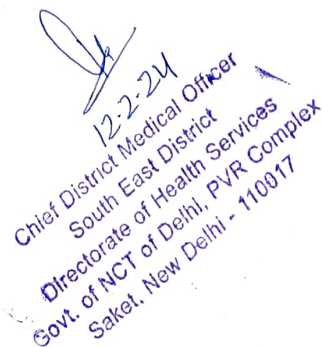 12-2-24
Chief District Medical Officer
South East District
Directorate of Health Services
Govt. of NCT of Delhi, PVR Complex
Saket, New Delhi - 110017